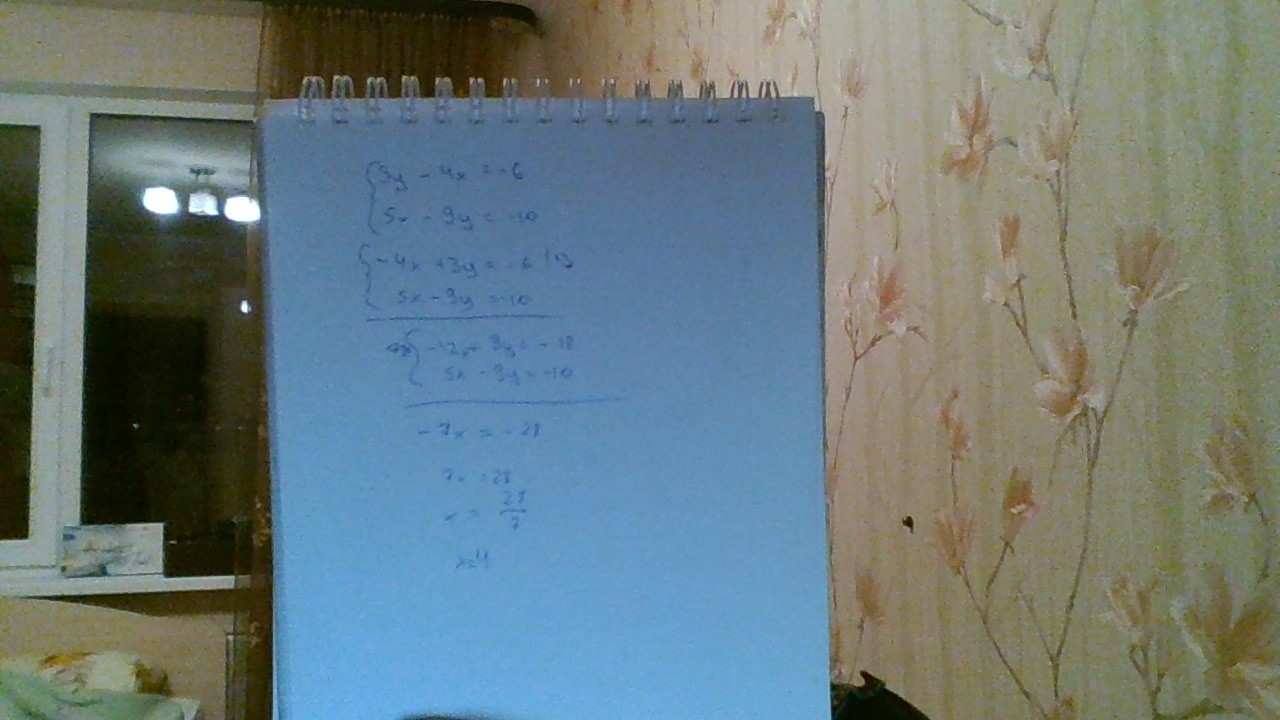 {3y - 4x = -6
5x - 9y = -10
{-4x + 3y = -6 |·3
5x - 9y = -10
{-12x + 9y = -18
5x - 9y = -10
-7x = -28
7x = 28
x = 28/7
x=4